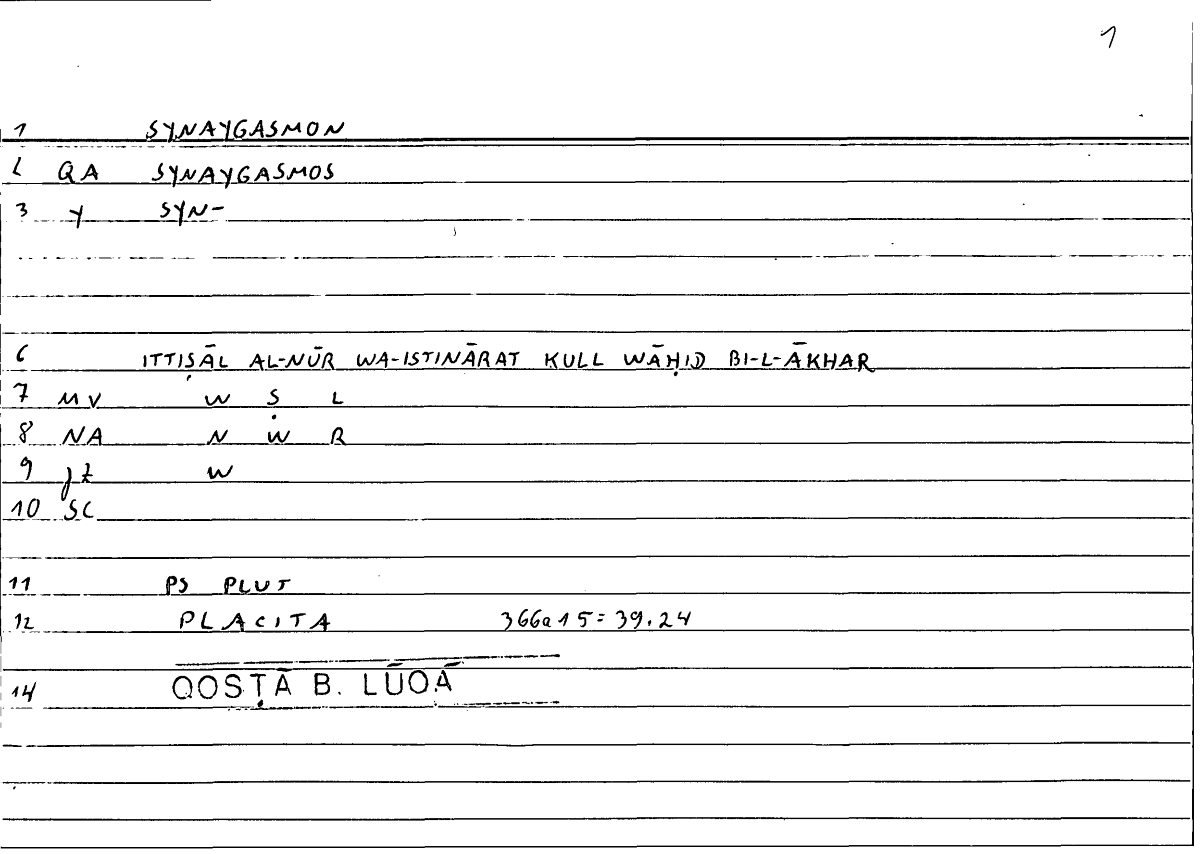 1
1 SYNAYGASMON
2 QA SYNAYGASMOS
3 Y SYN-
6 ITTIṢĀL AL-NŪR WA-ISTINĀRAT KULL WĀḤID BI-L-ĀKHAR
7 MV W Ṣ L
8 NA N W R
9 JZ W
10 SC
11 PS PLUT
12 PLACITA 366a15=39.24
14 QOSṬĀ B. LŪQĀ